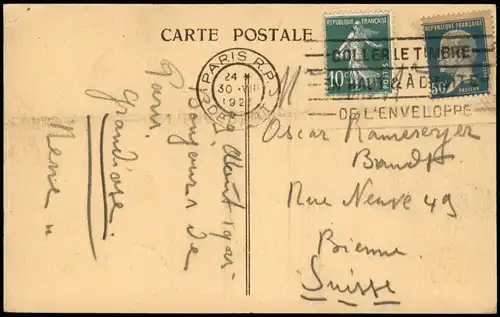 CARTE POSTALE
REPUBLIQUE FRANÇAISE
10c
POSTES
REPUBLIQUE FRANÇAISE
50c
PASTEUR
PARIS R.P.
24 *
30 - VIII
192
DEPART
COLLER LE TIMBRE
HAUT & A DROITE
DE L'ENVELOPPE
Oscar Ramseyer
Brandt
Rue Neuve 49
Bienne
Suisse
Bonjours de
Paris
grandiose.
René